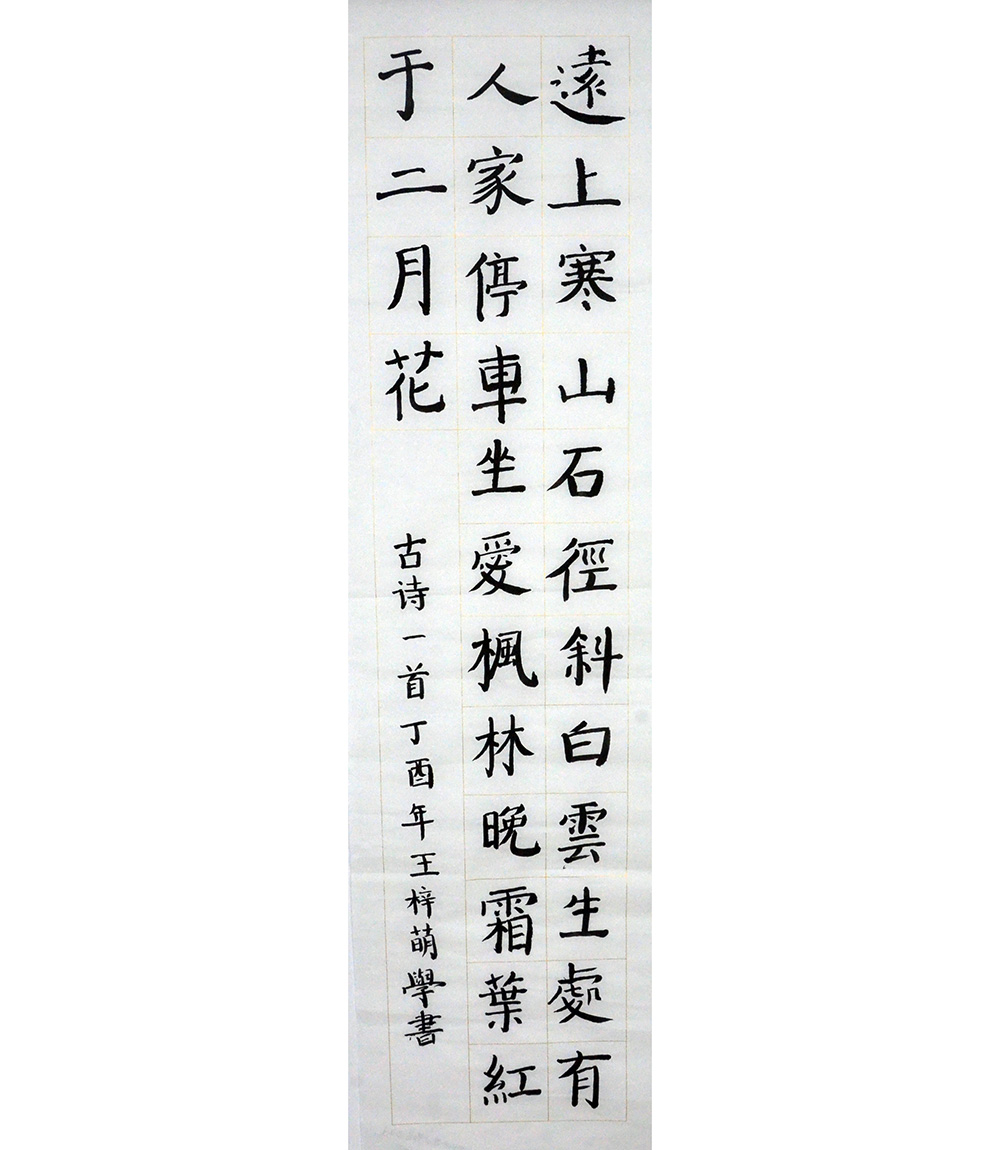 遠上寒山石徑斜白雲生處有
人家停車坐愛楓林晚霜葉紅
于二月花
古诗一首丁酉年王梓萌學書